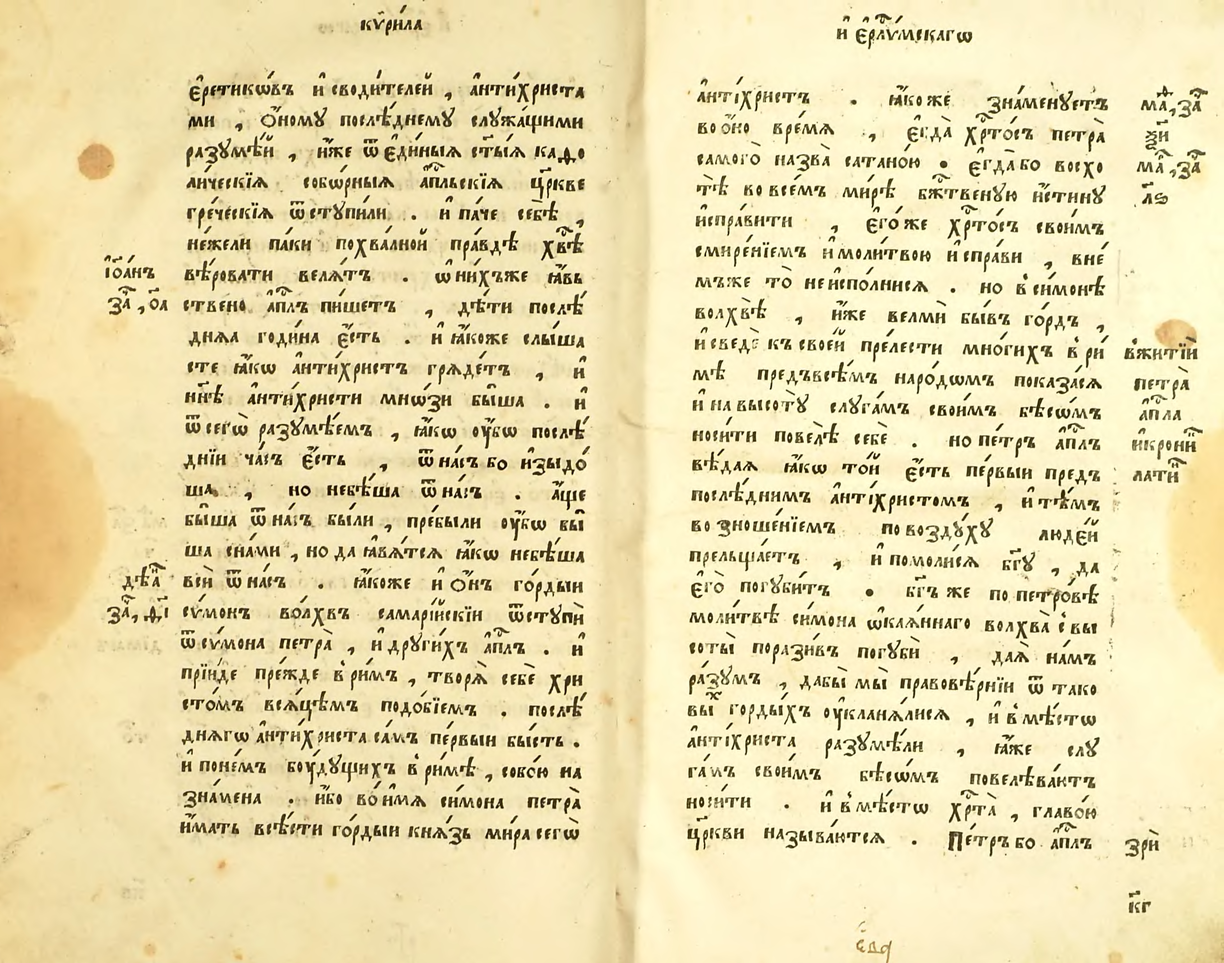 кѷри́ла
є҆ретикѡ́въ и҆ сводителей , а҆нти́христа
ми , ѻ҆ному послѣ́днему служа́щими
разумѣ́й , и҆́же ѿ є҆ди́ныѧ ст҃ы́ѧ каѳо
ли́ческїѧ собо́рныѧ а҆пⷭ҇льскїѧ цр҃кве
гре́ческїѧ ѿступи́ли . и҆ па́че себѣ̀ ,
не́жели па́ки похва́лной пра́вдѣ хвⷭ҇ѣ
і҆ѡ҃анъ
вѣ́ровати велѧ́тъ . ѡ҆ ни́хъже ꙗ҆́вь
заⷱ҇ , ѻ҃а
ствено а҆пⷭ҇лъ пи́шетъ , дѣ́ти послѣ́
днѧѧ годи́на є҆́сть . и҆ ꙗ҆́коже слы́ша
сте ꙗ҆́кѡ а҆нти́христъ грѧде́тъ , и҆
нн҃ѣ а҆нти́христи мно́зи бы́ша . и҆
ѿ сегѡ̀ разумѣ́емъ , ꙗ҆́кѡ ᲂу҆́бѡ послѣ́
днїи ча́съ є҆́сть , ѿ на́съ бо и҆зыдо́
ша , но не бѣ́ша ѿ на́съ . а҆́ще
бы́ша ѿ на́съ бы́ли , пребы́ли ᲂу҆́бѡ бы́
ша сна́ми , но да ꙗ҆вѧ́тсѧ ꙗ҆́кѡ не бѣ́ша
дѣꙗⷩ҇
всѝ ѿ на́съ . ꙗ҆́коже и҆ ѻ҆́нъ го́рдыи
заⷱ҇ , и҃і
сѵ́монъ во́лхвъ самарі́йскїи ѿступѝ
ѿ сѵ́мона петра̀ , и҆ други́хъ а҆пⷭ҇лъ . и҆
прїи́де пре́жде в̾ ри́мъ , творѧ̀ себѐ хри
сто́мъ всѧ́цѣмъ подо́бїемъ . послѣ́
днѧгѡ а҆нти́христа са́мъ пе́рвыи бы́сть .
и҆ по не́мъ бꙋ́дꙋщихъ в̾ ри́мѣ , собо́ю на
зна́мена . и҆́бо во и҆́мѧ си́мона петра̀
и҆́мать всѣ́сти го́рдыи кнѧ́зь ми́ра сегѡ̀
и҆ є҆рⷭ҇лѵ́мскагѡ
а҆нті́христъ . ꙗ҆́коже зна́менꙋетъ
маⷴ҇ , заⷱ҇
во ѻ҆́но вре́мѧ , є҆гда̀ хрⷭ҇то́съ петра̀
ѯ҃и
самого̀ назва̀ сатано́ю . є҆гда́ бо восхо
маⷴ҇ , заⷱ҇
тѣ̀ во все́мъ ми́рѣ бжⷭ҇твенꙋю и҆́стинꙋ
л҃ѕ
и҆спра́вити , є҆го́же хрⷭ҇то́съ свои́мъ
смире́нїемъ и҆ моли́твою и҆спра́ви , вне́
мъже то̀ не и҆спо́лнисѧ . но в̾ си́монѣ
волхвѣ̀ , и҆́же велмѝ бы́въ го́рдъ ,
и҆ сведѐ къ свое́й пре́лести мно́гихъ в̾ ри́
в̾ житїи
мѣ предъ всѣ́мъ наро́домъ показа́сѧ
петра̀
и҆ на высотꙋ̀ слꙋга́мъ свои́мъ бѣсѡ́мъ
а҆пⷭ҇ла
носи́ти повелѣ̀ себѐ . но пе́тръ а҆пⷭ҇лъ
и҆ крониⷩ҇
вѣ́даѧ ꙗ҆́кѡ то́й є҆́сть пе́рвыи предъ
латиⷩ҇
послѣ́днимъ а҆нті́христомъ , и҆ тѣ́мъ
возноше́нїемъ по воздꙋ́хꙋ люде́й
прельща́етъ , и҆ помоли́сѧ бг҃ꙋ , да
є҆го̀ погꙋ́битъ . бг҃ъ же по петро́вѣ
моли́твѣ си́мона ѡ҆каѧ́ннаго волхва̀ с̾ вы
соты̀ порази́въ погꙋбѝ , даѧ̀ на́мъ
ра́зꙋмъ , дабы̀ мы̀ правовѣ́рнїи ѿ тако
выⷯ го́рдыхъ ᲂу҆кланѧ́лисѧ , и҆ в̾мѣ́стѡ
а҆нті́христа разꙋмѣ́ли , ꙗ҆́же слꙋ
га́мъ свои́мъ бѣсѡ́мъ повелѣва́ютъ
носи́ти . и҆ в̾мѣ́стѡ хрⷭ҇та̀ , главо́ю
цр҃кви называ́ютсѧ . Пе́тръ бо а҆пⷭ҇лъ
зрѝ
к҃г